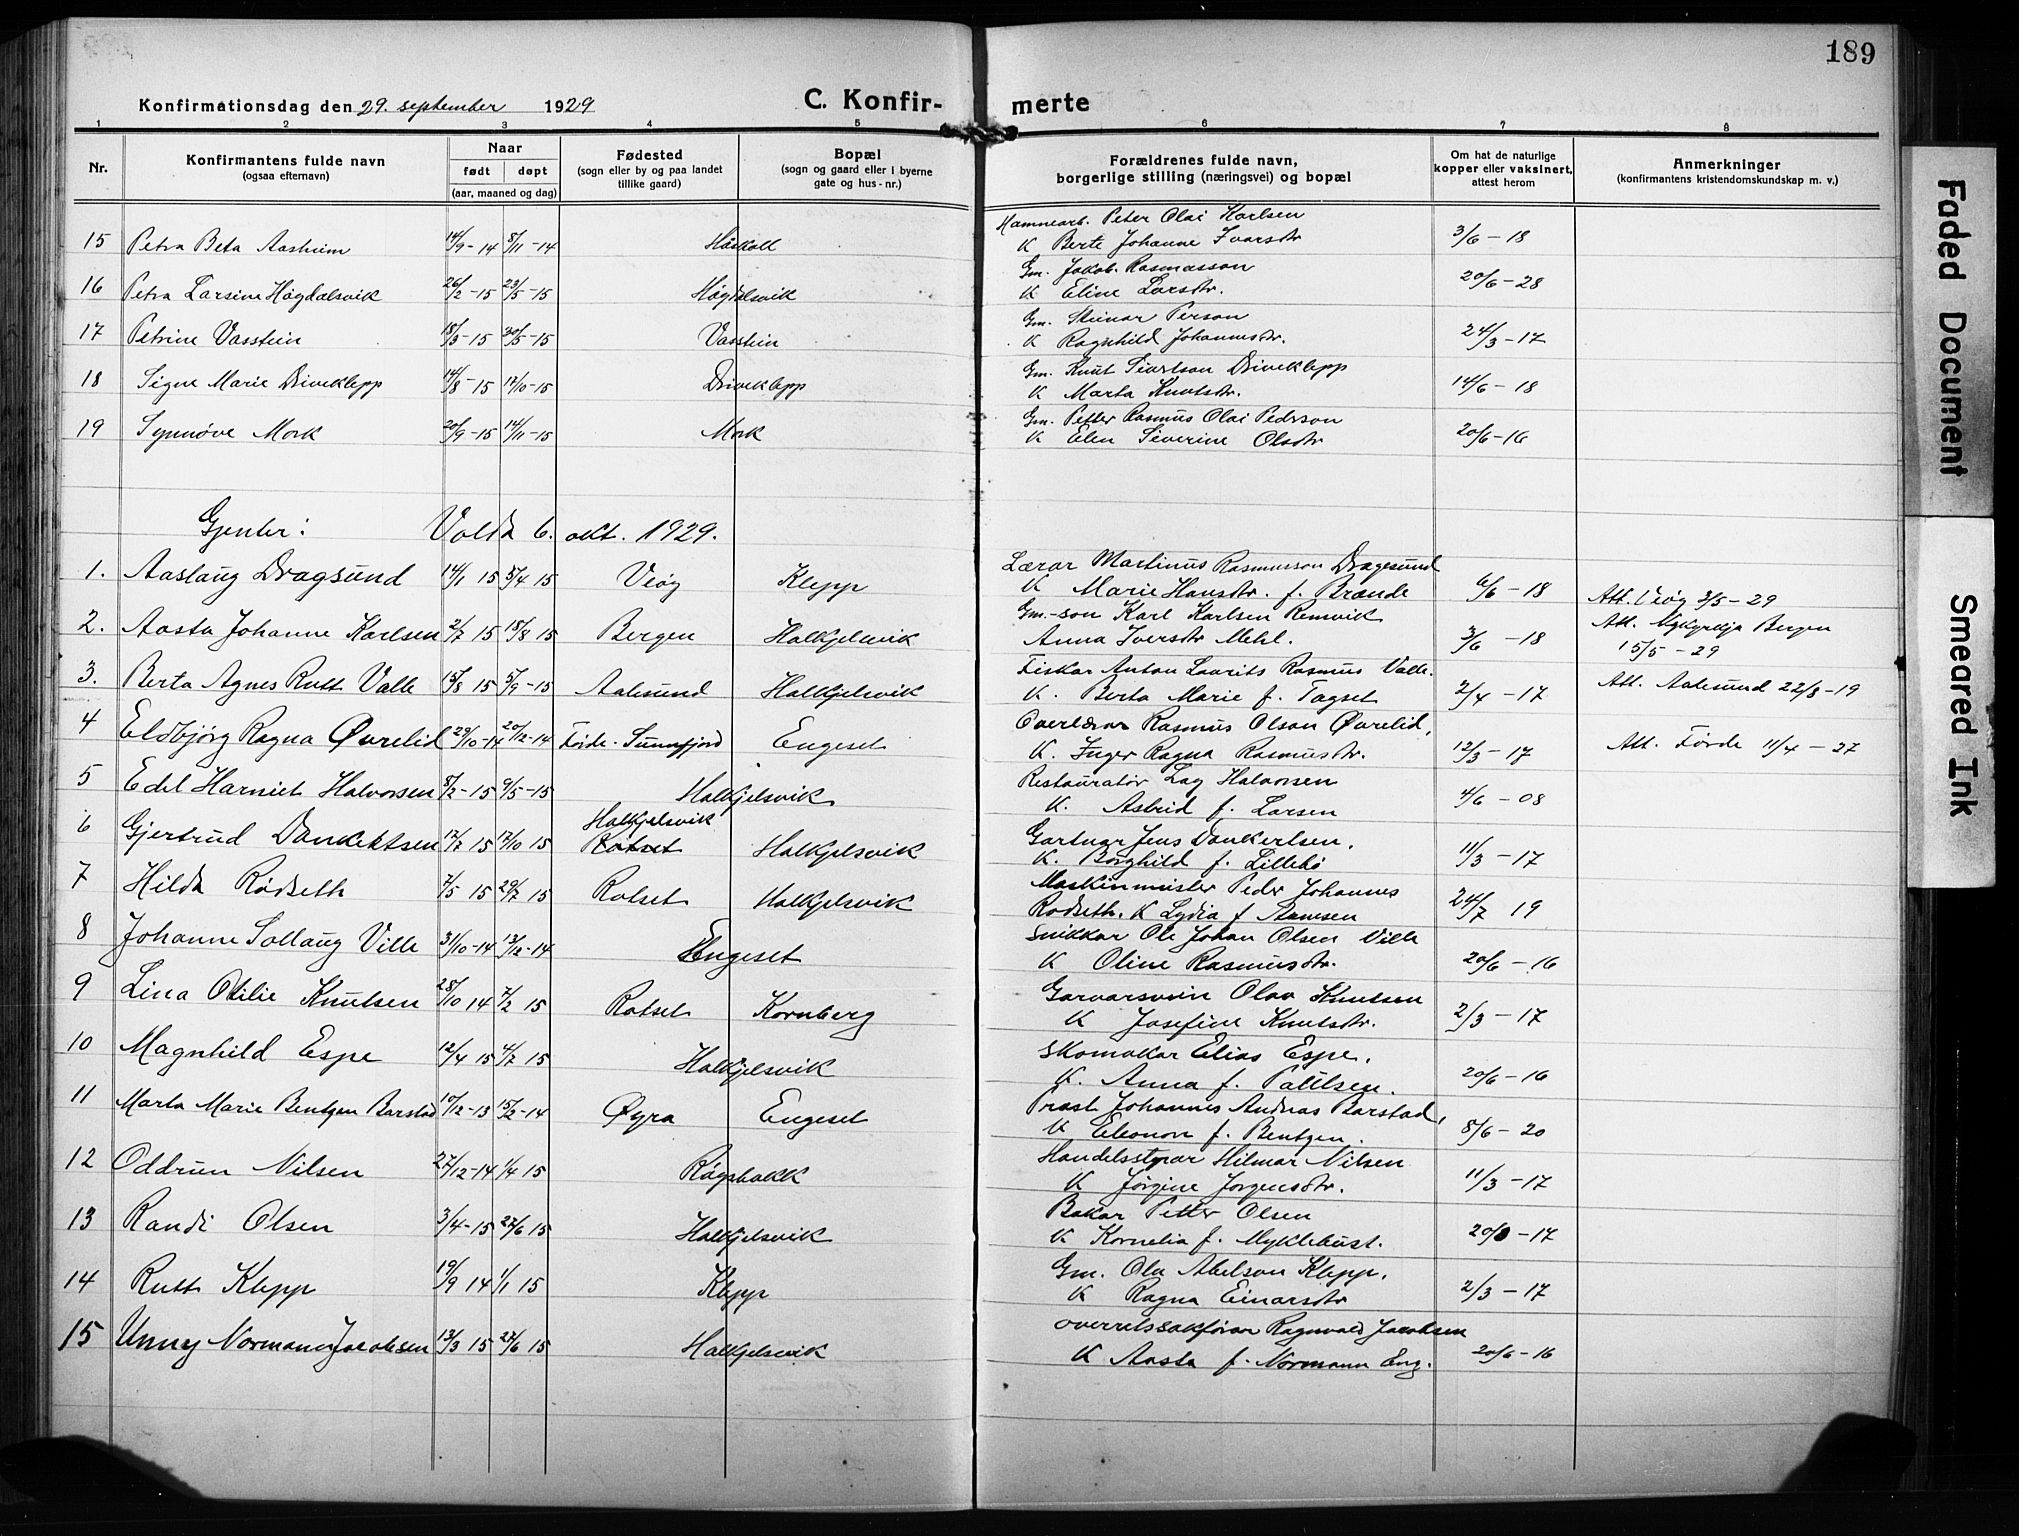 189
Konfirmationsdag den 29. september 1929
C. Konfir-merte
1 2 3 4 5 6 7 8
Nr. Konfirmantens fulde navn (ogsaa efternavn) Naar født døpt (aar, maaned og dag) Fødested (sogn eller by og paa landet tillike gaard) Bopæl (sogn og gaard eller i byerne gate og hus-nr.) Forældrenes fulde navn, borgerlige stilling (næringsvei) og bopæl Om hat de naturlige kopper eller vaksinert, attest herom Anmerkninger (konfirmantens kristendomskundskap m. v.)
Peter Olai Karlsen
15 Petra Beta Aasheim 14/9-14 8/11-14 K Berte Johanne Ivarsdtr 3/6-18
Gm. Jakob Rasmusson
16 Petra Larsine Høgdalsvik 26/2-15 23/5-15 Høgdalsvik K Eline Larsdtr. 20/6-28
Gm. Steinar Person
17 Petrine Vasstein 18/3-15 30/5-15 Vasstein K Ragnhild Johannesdtr. 24/3-17
Gm. Knut Sivertson Driveklepp
18 Signe Marie Driveklepp 14/8-15 17/10-15 Driveklepp K Marta Knutsdtr. 14/6-18
Gm. Petter Rasmus Olai Pederson
19 Synnøve Mork 20/9-15 14/11-15 Mork K Elen Severine Olsdtr 20/6-16
Gjenter: Volda 6. okt. 1929.
Lærar Martinus Rasmusson Dragesund
1. Aaslaug Dragsund 14/1 15 5/4 15 Veøy Klepp K Marie Hansdtr. f. Brande 6/6-18 Att. Veøy 3/5-29
Gm.-son Karl Karlsen Remvik
2. Aasta Johanne Karlsen 2/7 15 15/8 15 Bergen Halkjelsvik Anna Iversdtr Mehl. 3/6-18 Att. Nykyrkja Bergen
15/5-29
Fiskar Anton Laurits Rasmus Valle.
3. Berta Agnes Rutt Valle 15/8 15 5/9-15 Aalesund Halkjelsvik K. Berta Marie f. Tagset 2/4-17 Att. Aalesund 22/8-19
Overlærar Rasmus Olson Øvrelid,
4 Eldbjørg Ragna Øvrelid 29/10-14 20/12-14 Førde. Sunnfjord Engeset K. Inger Ragna Rasmusdtr. 12/3-17 Att. Førde 11/4-27
Restauratør Lag Halvorsen
5 Edel Harriet Halvorsen 8/2-15 9/5-15 Halkjelsvik K. Astrid f. Larsen 4/6-08
Halkjelsvik Gartnar Jens Dankertsen,
6 Gjertrud Dankertsen 12/7 15 17/10 15 Rotset Halkjelsvik K. Borghild f. Lillebø 11/3-17
Maskinmester Peder Johannes
7 Hilda Rødseth 7/5 15 29/7 15 Rotset Halkjelsvik Rødseth. K Lydia f 24/7 19
Snikkar Ole Johan Olsen Ville
8 Johanne Sollaug Ville 31/10-14 13/12-14 Engeset K Oline Rasmusdtr. 20/6-16
Garvarsvein Olav Knutsen
9 Lina Otilie Knutsen 28/10 14 7/2 15 Rotset Kornberg K Josefine Knutsdtr. 2/3-17
Skomakar Elias Espe,
10 Magnhild Espe 12/4 15 4/7 15 Halkjelsvik K. Anna f. Paulsen. 20/6-16
Prost Johannes Andreas Barstad,
11 Marta Marie Bentzen Barstad 10/12-13 15/2-14 Øyra Engeset K Eleonore f. Bentzen. 8/6-20
Handelsstyrar Hilmar Nilsen
12 Oddrun Nilsen 27/12-14 1/4 15 Røysbakk K Jørgine Jørgensdtr. 11/3-17
Bakar Petter Olsen
13 Randi Olsen 3/4-15 27/6 15 Halkjelsvik K Kornelia f. Myklebust. -17
Gm. Ole Abelson Klepp.
14 Rutt Klepp 19/9 14 1/1 15 Klepp K Ragna Einarsdtr 2/3-17
Overretssakførar Ragnvald Jacobsen
15 Unny Normann Jacobsen 13/3 15 27/6 15 Halkjelsvik K Aasta f. Normann Eng. 20/6-16
Faded Document
Smeared Ink